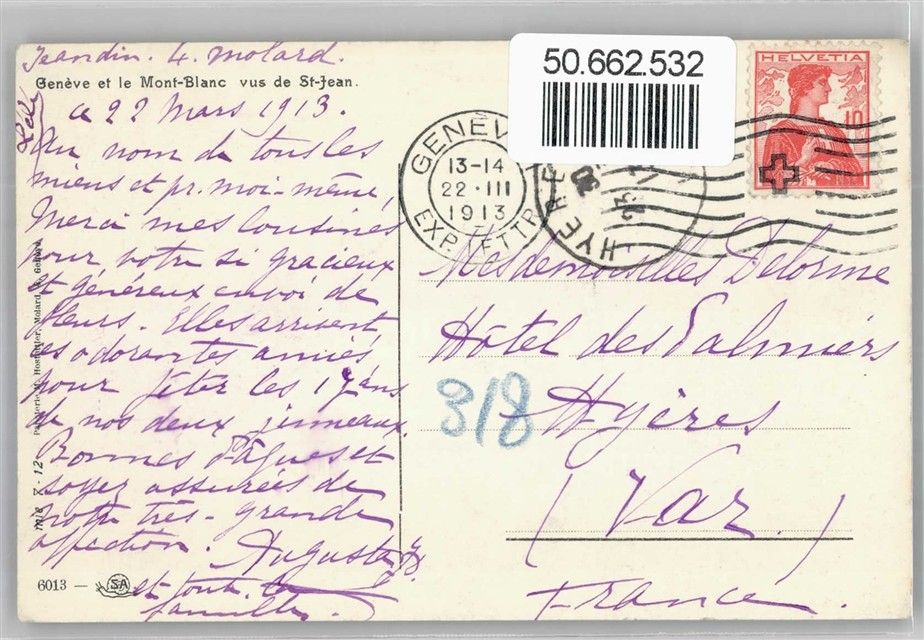 Jeandin. 4. Molard.
Genève et le Mont-Blanc vus de St-Jean.
le 22 Mars 1913.
Au nom de tous les
miens et pr. moi-même,
Merci mes cousines
pour votre si gracieux
et généreux envoi de
fleurs. Elles arrivent
ces odorantes amies
pour fêter les 17 ans
de nos deux jumeaux.
Bonnes Pâques et
soyez assurées de
notre très-grande
affection. Augusta J.
et toute la
famille.
6013 — SA
Papeterie Hostettler, Molard, Genève
50.662.532
HELVETIA
10
GENÈV
13-14
22·III
1913
EXP. LETTR
HYERE
Mesdemoiselles Delorme
Hôtel des Palmiers
318
Hyères
(Var)
France.